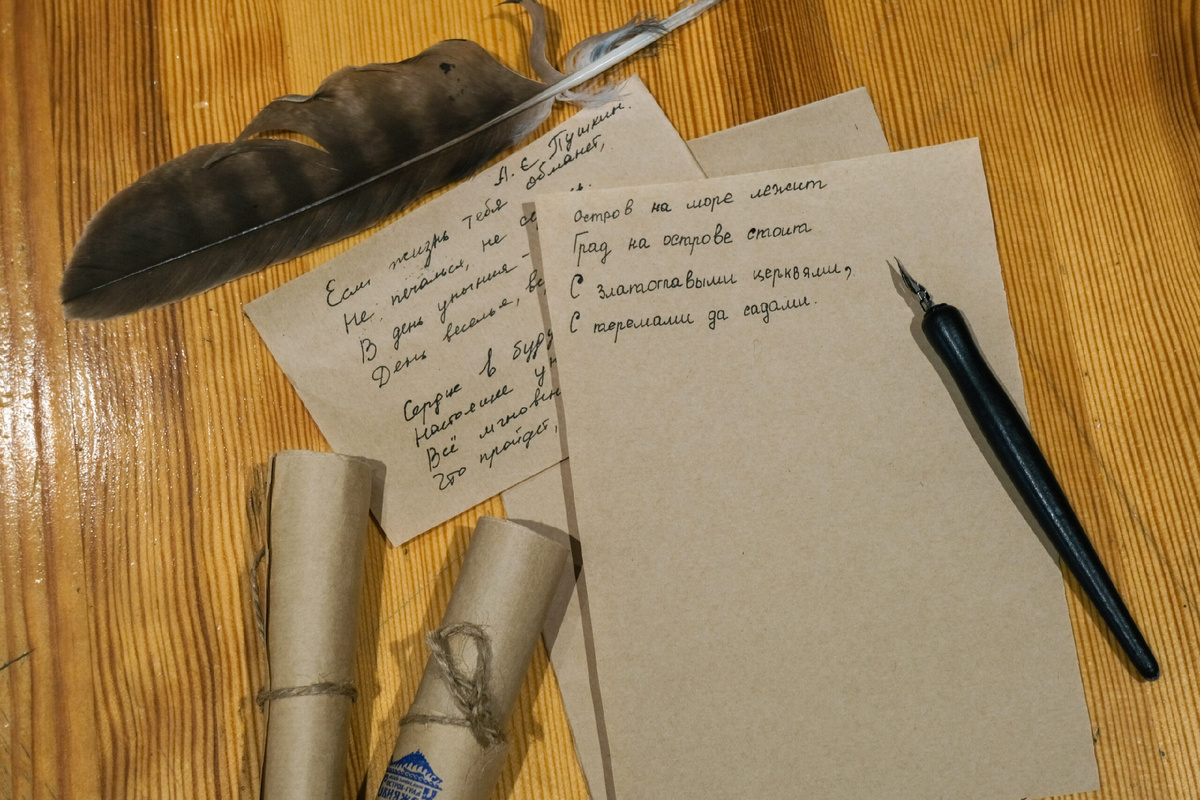 А. С. Пушкин.
Если жизнь тебя обманет,
Не печалься, не
В день уныния -
День веселья,
Сердце в
Настоящее
Всё
Что пройдет,
остров на море лежит
Град на острове стоит
С златоглавыми церквями,
С теремами да садами.